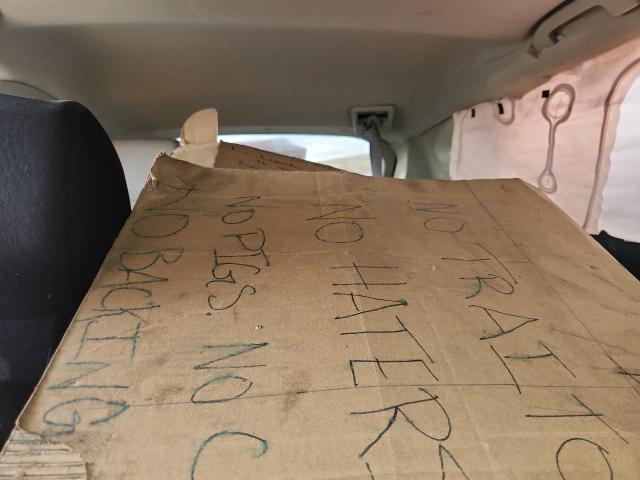 NO TRAITO
NO HATERS
NO PIGS. NO C
NO BACKING